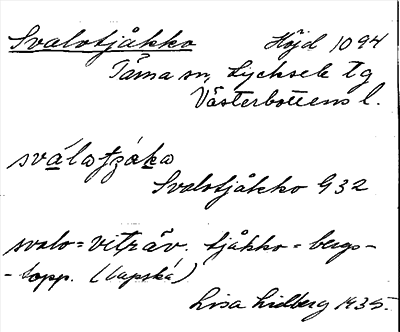 Svalotjåkko Höjd 1094
Tärna sn, Lycksele tg
Västerbottens l.
svàlatjåkа
Svalotjåkko G32
svalo = viträv. tjåkko = bergs-
-topp. (lapska)
Lisa Lidberg 1935.